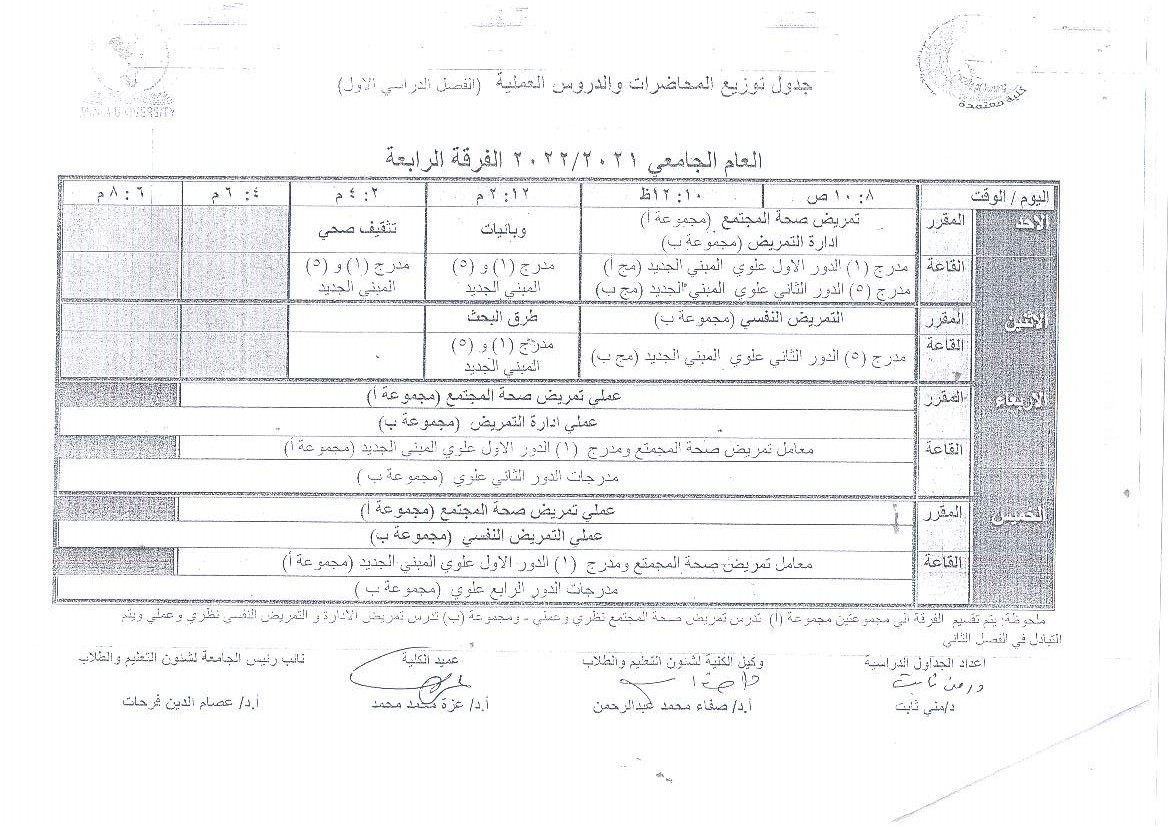 MINIA UNIVERSITY
كلية معتمدة
جدول توزيع المحاضرات والدروس العملية (الفصل الدراسي الاول)
العام الجامعي ٢٠٢٢/٢٠٢١ الفرقة الرابعة
اليوم / الوقت ٨ :١٠ ص ١٠: ١٢ظ ١٢: ٢ م ٢: ٤ م ٤: ٦ م ٦: ٨ م
الاحد المقرر تمريض صحة المجتمع (مجموعة أ) وبائيات تثقيف صحي
ادارة التمريض (مجموعة ب)
القاعة مدرج (١) الدور الاول علوي المبني الجديد (مج أ) مدرج (١) و (٥) مدرج (١) و (٥)
مدرج (٥) الدور الثاني علوي المبني الجديد (مج ب) المبني الجديد المبني الجديد
الاثنين المقرر التمريض النفسي (مجموعة ب) طرق البحث
القاعة مدرج (٥) الدور الثاني علوي المبني الجديد (مج ب) مدرج (١) و (٥)
المبني الجديد
الاربعاء المقرر عملي تمريض صحة المجتمع (مجموعة أ)
عملي ادارة التمريض (مجموعة ب)
القاعة معامل تمريض صحة المجمتع ومدرج (١) الدور الاول علوي المبني الجديد (مجموعة أ)
مدرجات الدور الثاني علوي (مجموعة ب )
الخميس المقرر عملي تمريض صحة المجتمع (مجموعة أ)
عملي التمريض النفسي (مجموعة ب)
القاعة معامل تمريض صحة المجمتع ومدرج (١) الدور الاول علوي المبني الجديد (مجموعة أ)
مدرجات الدور الرابع علوي (مجموعة ب )
ملحوظة: يتم تقسيم الفرقة الي مجموعتين مجموعة (أ) تدرس تمريض صحة المجتمع نظري وعملي - ومجموعة (ب) تدرس تمريض الادارة و التمريض النفسي نظري وعملي ويتم
التبادل في الفصل الثاني
اعداد الجداول الدراسية وكيل الكلية لشئون التعليم والطلاب عميد الكلية نائب رئيس الجامعة لشئون التعليم والطلاب
د/مني ثابت أ.د/ صفاء محمد عبدالرحمن أ.د/ عزة محمد محمد أ.د/ عصام الدين فرحات